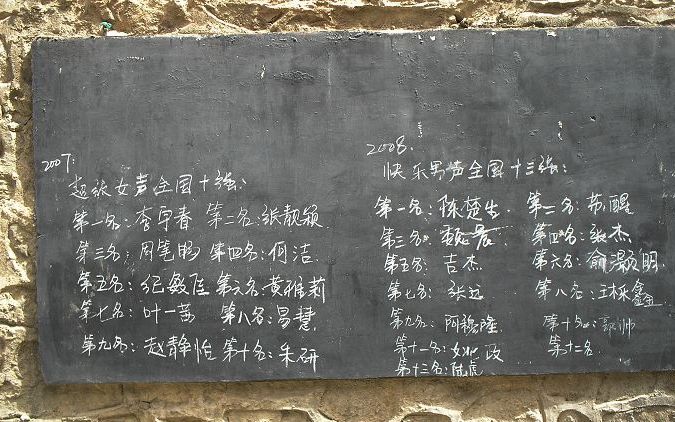 2007:
超级女声全国十强:
第一名:李宇春 第二名:张靓颖
第三名:周笔畅 第四名:何洁
第五名:纪敏佳 第六名:黄雅莉
第七名:叶一茜 第八名:易慧
第九名:赵静怡 第十名:朱妍
2008.
快乐男声全国十三强:
第一名:陈楚生 第二名:苏醒
第三名: 第四名:张杰
第五名:吉杰 第六名:俞灏明
第七名:张远 第八名:王栎鑫
第九名:阿穆隆 第十名:郭帅
第十一名:姚政 第十二名
第十三名:陆虎